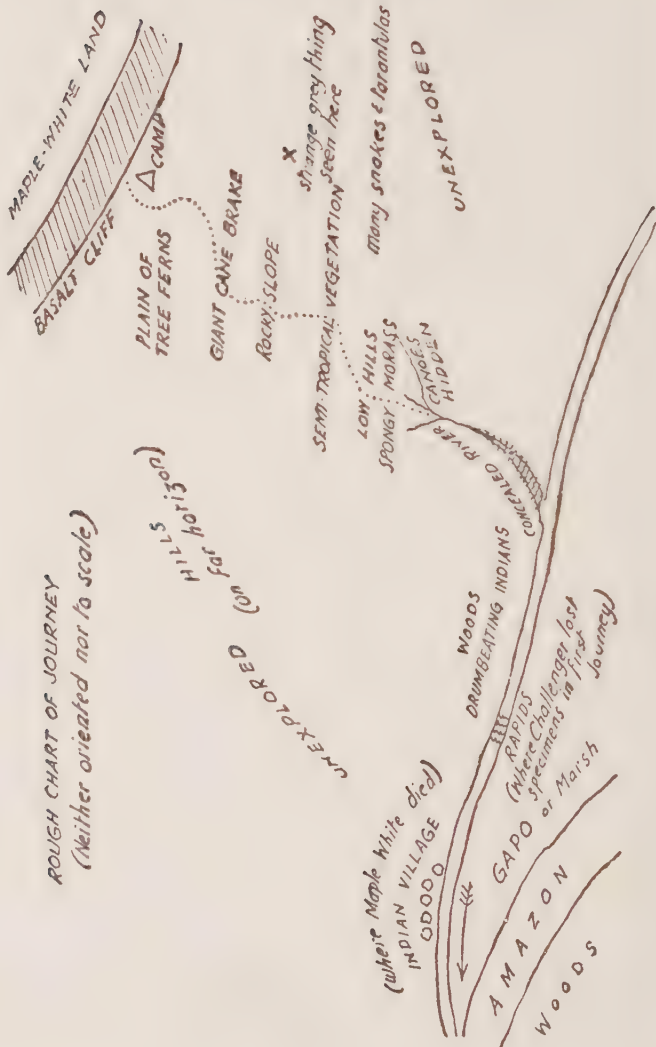 ROUGH CHART OF JOURNEY
(Neither oriented nor to scale)
MAPLE-WHITE LAND
BASALT CLIFF
CAMP
PLAIN OF
TREE FERNS
GIANT CANE BRAKE
ROCKY SLOPE
x
strange grey thing
seen here
SEMI-TROPICAL VEGETATION
many snakes & tarantulas
UNEXPLORED
LOW-HILLS
SPONGY MORASS
CANOES
HIDDEN
CONCEALED RIVER
HILLS
(on far horizon)
UNEXPLORED
WOODS
DRUMBEATING INDIANS
RAPIDS
(Where Challenger lost
specimens in first
Journey)
(where Maple White died)
INDIAN VILLAGE
GAPO or Marsh
AMAZON
WOODS